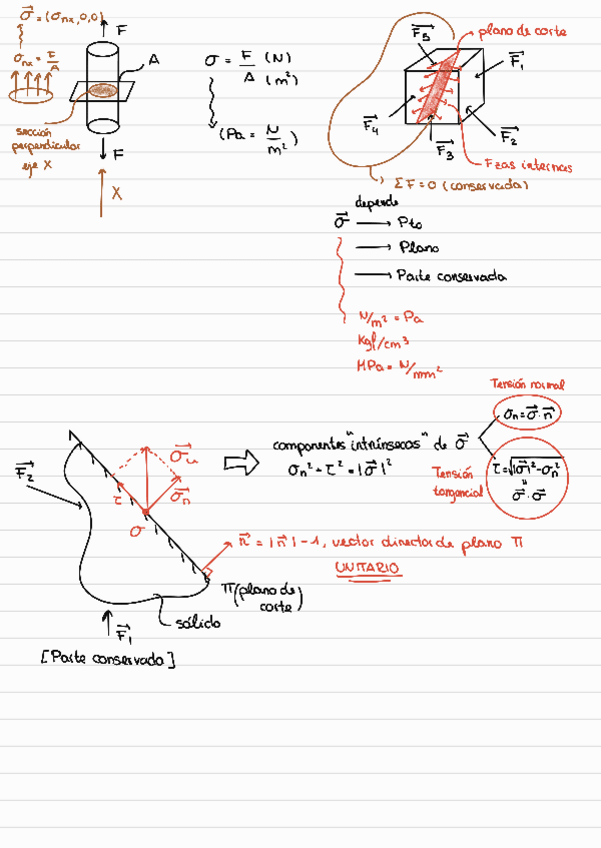 σ⃗ = (σnx, 0, 0)
F
σnx = F/A
A
sección
perpendicular
eje X
F
X
σ = F/A (N)/(m²)
(Pa = N/m²)
F₅
plano de corte
F₁
F₄
F₃
F₂
Fzas internas
ΣF = 0 (conservada)
depende
σ⃗ → Pto
→ Plano
→ Parte conservada
N/m² = Pa
Kgf/cm³
MPa = N/mm²
Tensión normal
σn = σ⃗ · n⃗
componentes "intrínsecos" de σ⃗
σn² + τ² = |σ⃗|²
Tensión
tangencial
τ = √|σ⃗|² - σn²
"
σ⃗ · σ⃗
F₂
τ
σn
σ
n⃗ = |n⃗| - 1, vector director de plano π
UNITARIO
π (plano de
corte)
sólido
F₁
[Parte conservada]